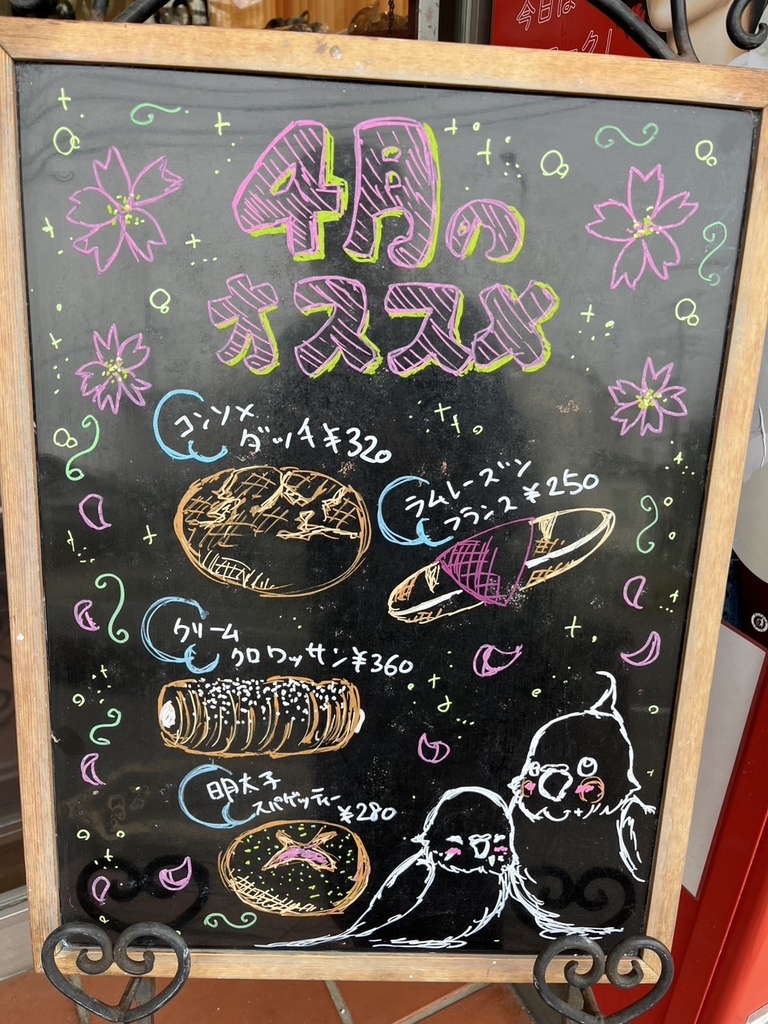 今日は
4月の
オススメ
コンソメ
ダッチ ¥320
ラムレーズン
フランス ¥250
クリーム
クロワッサン ¥360
明太子
スパゲッティー
¥280